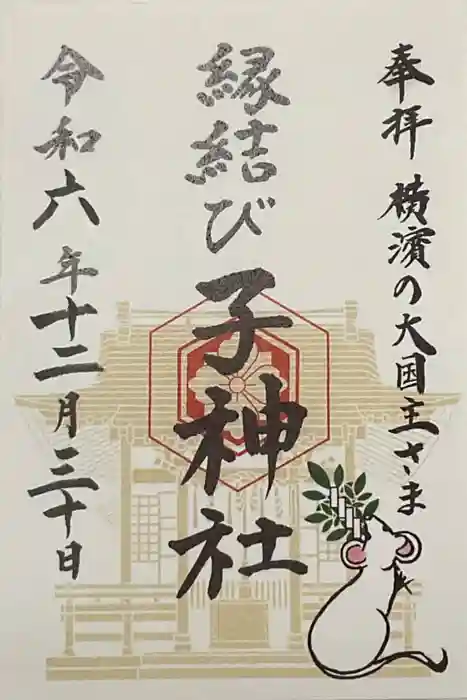 奉拝 横濱の大国主さま
縁結び 子神社
令和六年十二月三十日